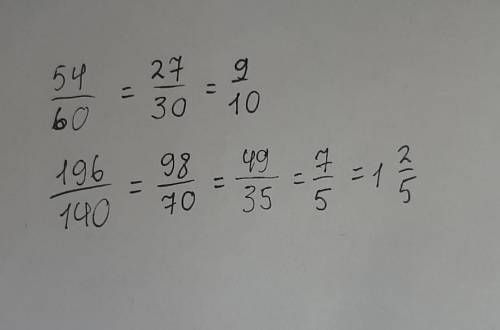 54/60 = 27/30 = 9/10
196/140 = 98/70 = 49/35 = 7/5 = 1 2/5